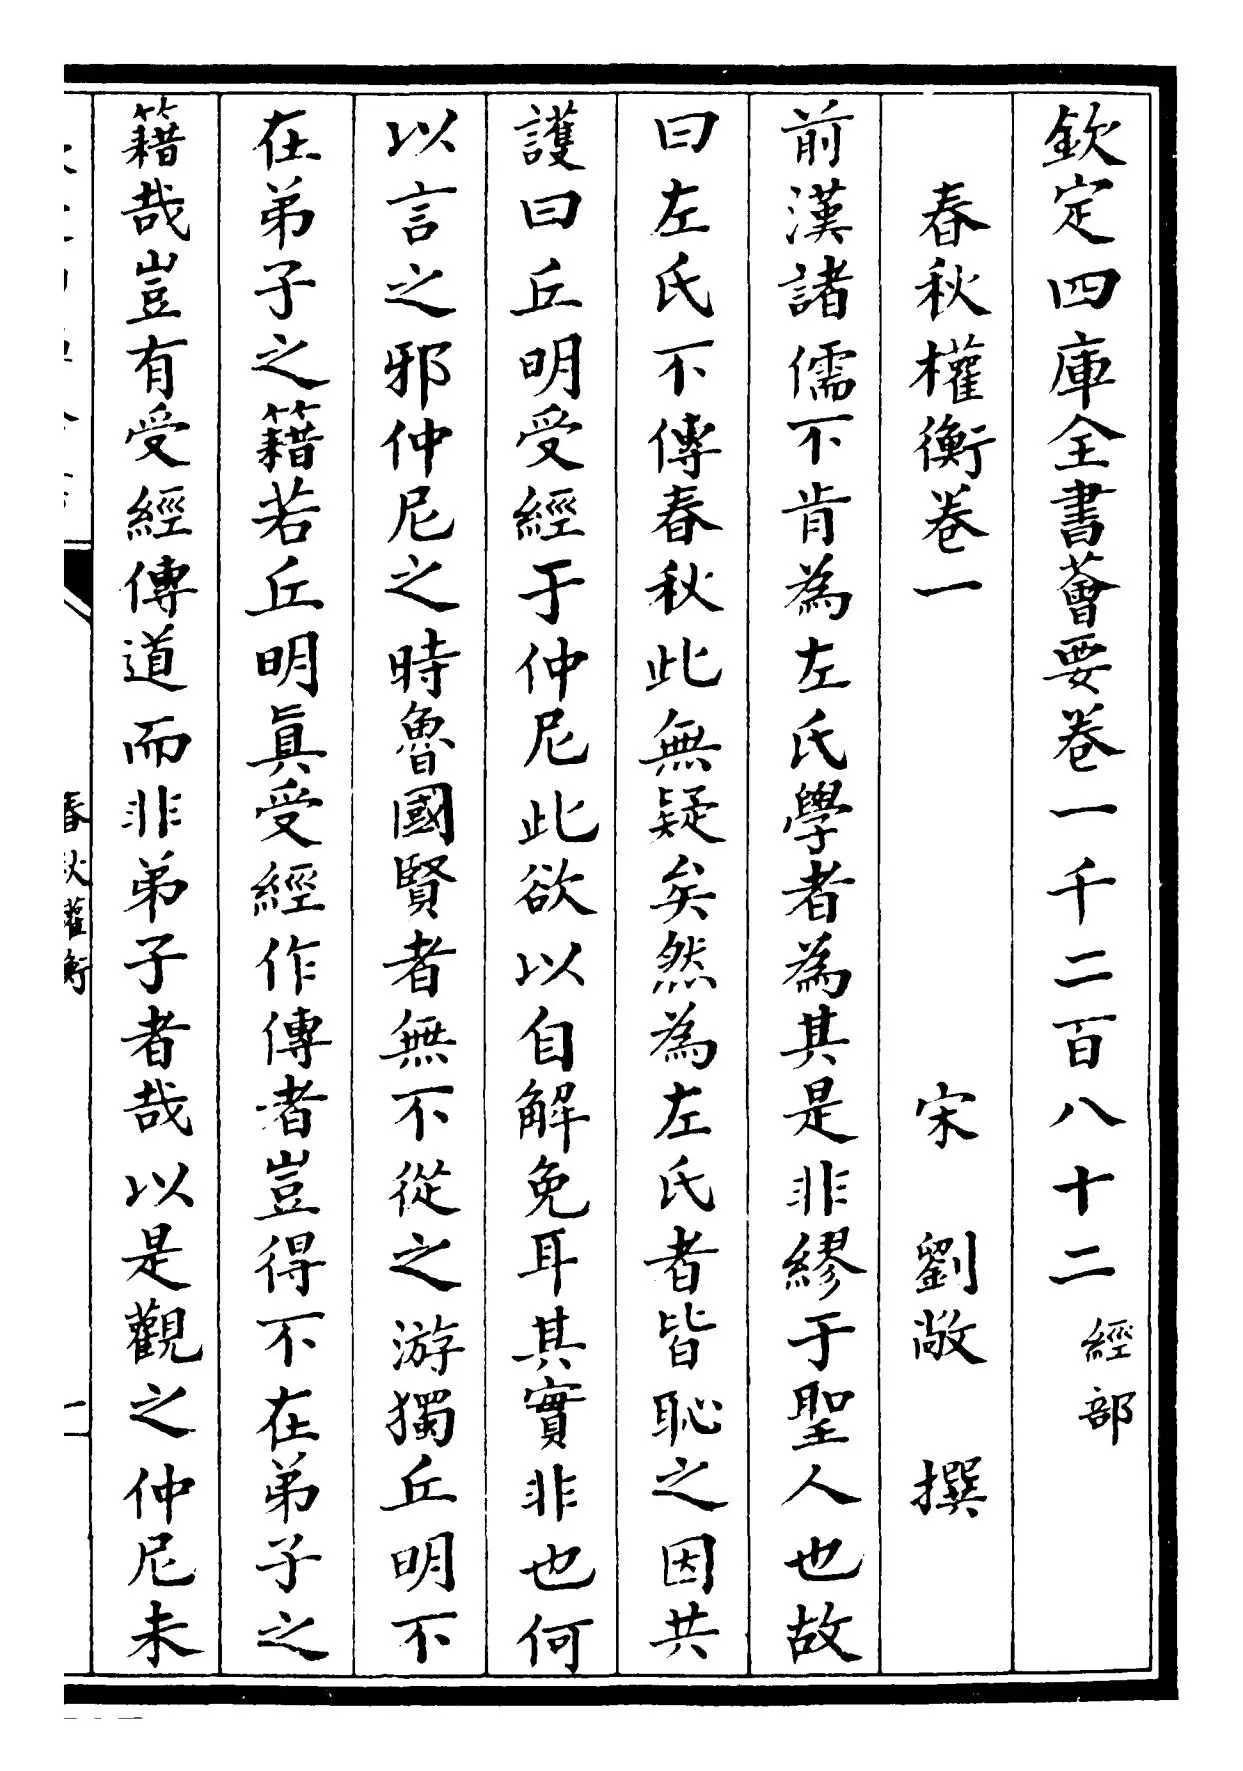 欽定四庫全書薈要卷一千二百八十二 經部
春秋權衡卷一 宋 劉敞 撰
前漢諸儒不肯為左氏學者為其是非繆于聖人也故
曰左氏不傳春秋此無疑矣然為左氏者皆恥之因共
護曰丘明受經于仲尼此欲以自解免耳其實非也何
以言之邪仲尼之時魯國賢者無不從之游獨丘明不
在弟子之籍若丘明真受經作傳者豈得不在弟子之
籍哉豈有受經傳道而非弟子者哉以是觀之仲尼未
春秋權衡
一